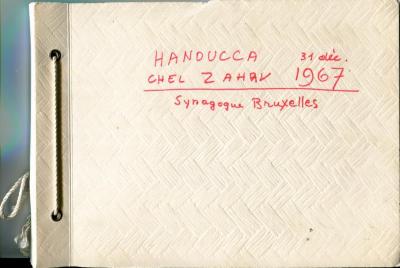 HANOUCCA 31 déc.
CHEL ZAHAV 1967
Synagogue Bruxelles